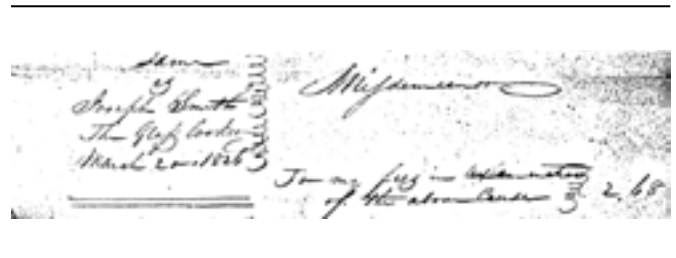 same
vs
Joseph Smith
The Glass looker
March 20 1826
Misdemeanor
To my fees in examination
of the above cause 2.68